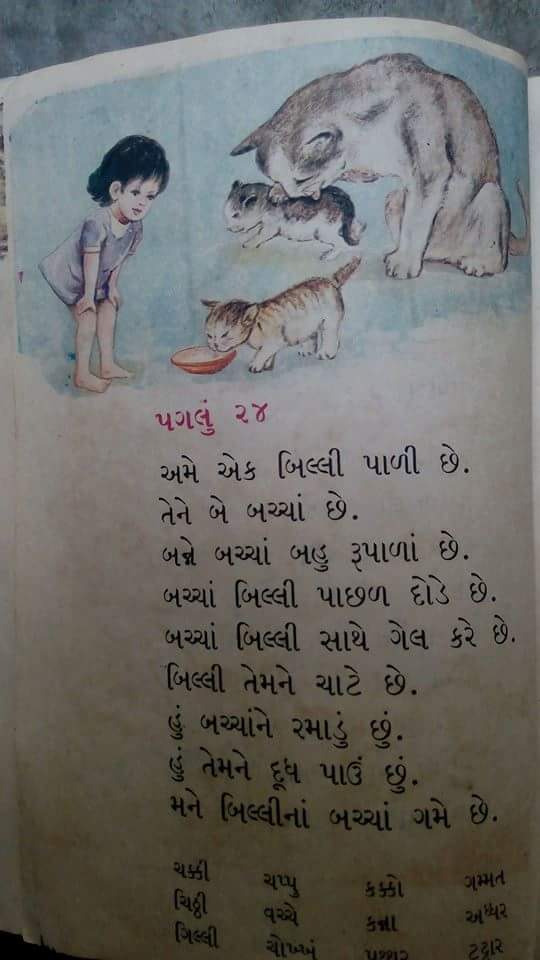 પગલું ૨૪
અમે એક બિલ્લી પાળી છે.
તેને બે બચ્ચાં છે.
બન્ને બચ્ચાં બહુ રૂપાળાં છે.
બચ્ચાં બિલ્લી પાછળ દોડે છે.
બચ્ચાં બિલ્લી સાથે ગેલ કરે છે.
બિલ્લી તેમને ચાટે છે.
હું બચ્ચાંને રમાડું છું.
હું તેમને દૂધ પાઉં છું.
મને બિલ્લીનાં બચ્ચાં ગમે છે.
ચક્કી ચપ્પુ કક્કો ગમ્મત
ચિઠ્ઠી વચ્ચે કન્ના અધ્ધર
ગિલ્લી ચોખ્ખું પથ્થર ટટ્ટાર